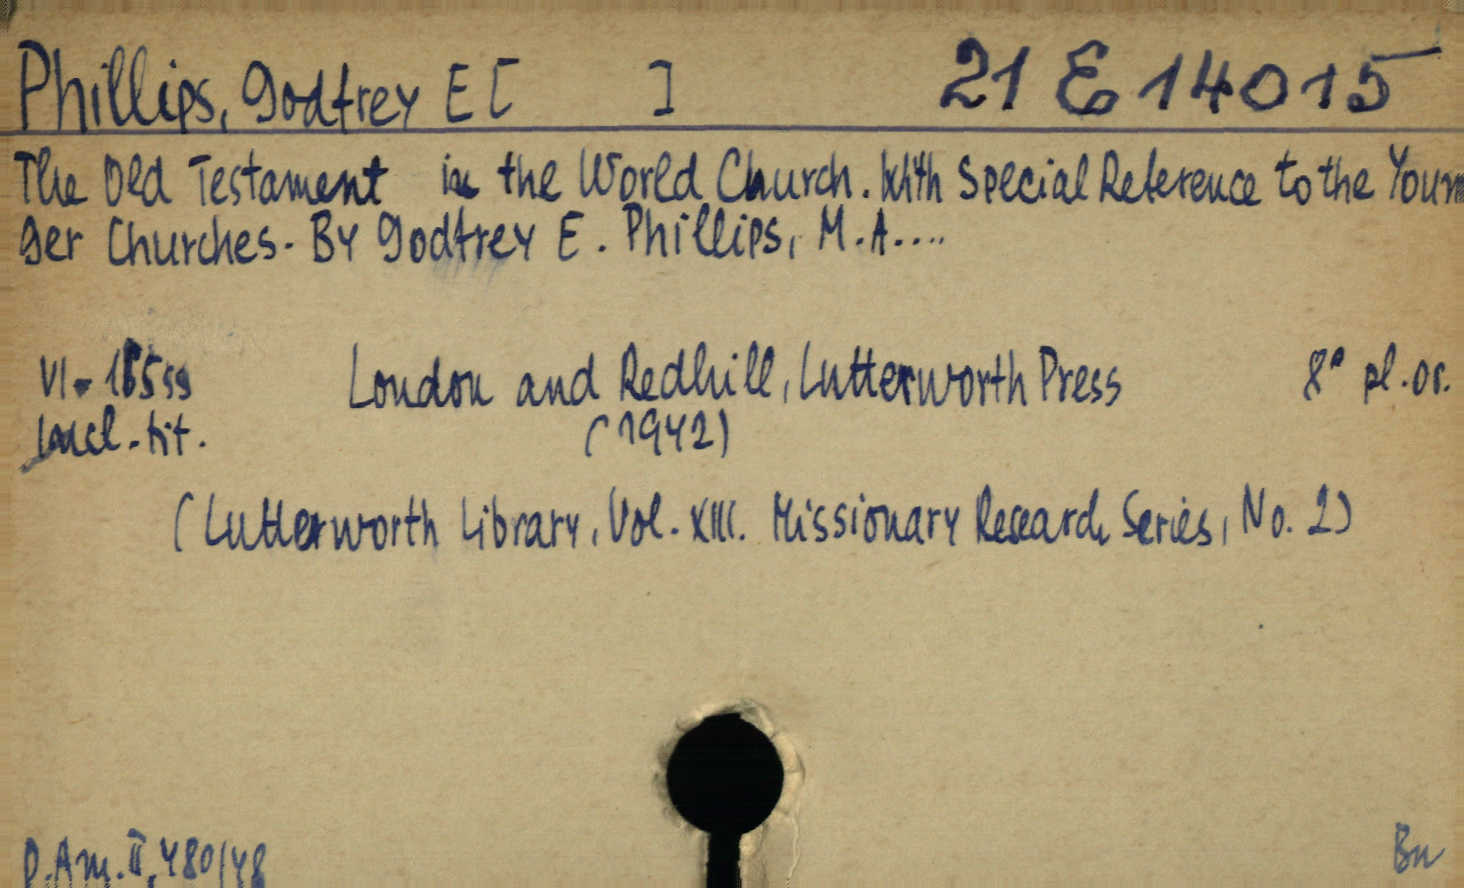 Phillips, Godfrey E [ ] 21 E 14015
The Old Testament in the World Church. With Special Reference to the Youn
ger Churches. By Godfrey E. Phillips, M.A....
VI-165 ss London and Redhill, Lutterworth Press 8° pl.or.
incl. tit. (1942)
(Lutterworth Library, Vol. XIII. Missionary Research Series, No. 2)
D.Am.II,480/48 Bn